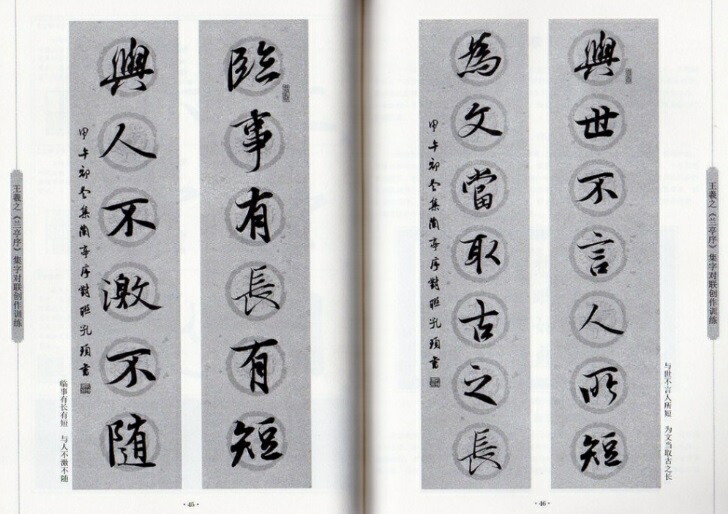 王羲之《兰亭序》集字对联创作训练
臨事有長有短
與人不激不随
甲午初冬集蘭亭序對联孔頊書
临事有长有短 与人不激不随
·45·
與世不言人所短
為文當取古之長
甲午初冬集蘭亭序對联孔頊書
与世不言人所短 为文当取古之长
王羲之《兰亭序》集字对联创作训练
·46·